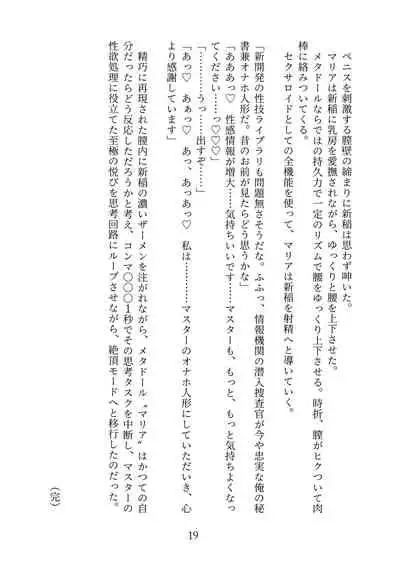 ペニスを刺激する膣壁の締まりに新稲は思わず呻いた。
マリアは新稲に乳房を愛撫されながら、ゆっくりと腰を上下させた。
メタドールならではの持久力で一定のリズムで腰をゆっくり上下させる。時折、膣がヒクついて肉
棒に絡みついてくる。
セクサロイドとしての全機能を使って、マリアは新稲を射精へと導いていく。
「新開発の性技ライブラリも問題無さそうだな。ふふっ、情報機関の潜入捜査官が今や忠実な俺の秘
書兼オナホ人形だ。昔のお前が見たらどう思うかな」
「あああっ♡　性感情報が増大……気持ちいいです……マスターも、もっと、もっと、気持ちよくなっ
てください……っ♡♡♡」
「………うっ……出すぞ……」
「あっ♡　あぁっ♡　あっ、あっあっ♡　私は…………マスターのオナホ人形にしていただいき、心
より感謝しています」
精巧に再現された膣内に新稲の濃いザーメンを注がれながら、メタドール〝マリア〟はかつての自
分だったらどう反応しただろうかと考え、コンマ〇〇〇１秒でその思考タスクを中断し、マスターの
性欲処理に役立てた至極の悦びを思考回路にループさせながら、絶頂モードへと移行したのだった。
（完）
19